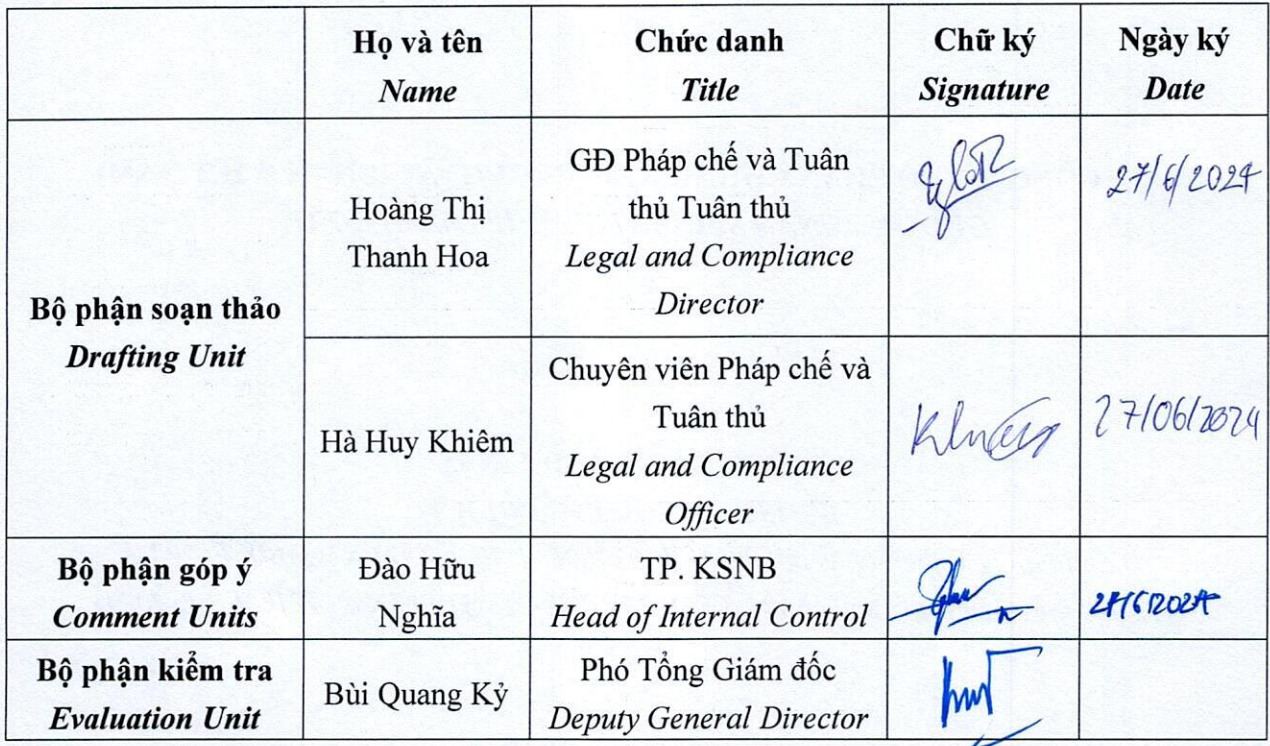 Họ và tên
Name
Chức danh
Title
Chữ ký
Signature
Ngày ký
Date
Bộ phận soạn thảo
Drafting Unit
Hoàng Thị
Thanh Hoa
GĐ Pháp chế và Tuân
thủ Tuân thủ
Legal and Compliance
Director
27/6/2024
Hà Huy Khiêm
Chuyên viên Pháp chế và
Tuân thủ
Legal and Compliance
Officer
27/06/2024
Bộ phận góp ý
Comment Units
Đào Hữu
Nghĩa
TP. KSNB
Head of Internal Control
27/6/2024
Bộ phận kiểm tra
Evaluation Unit
Bùi Quang Kỷ
Phó Tổng Giám đốc
Deputy General Director